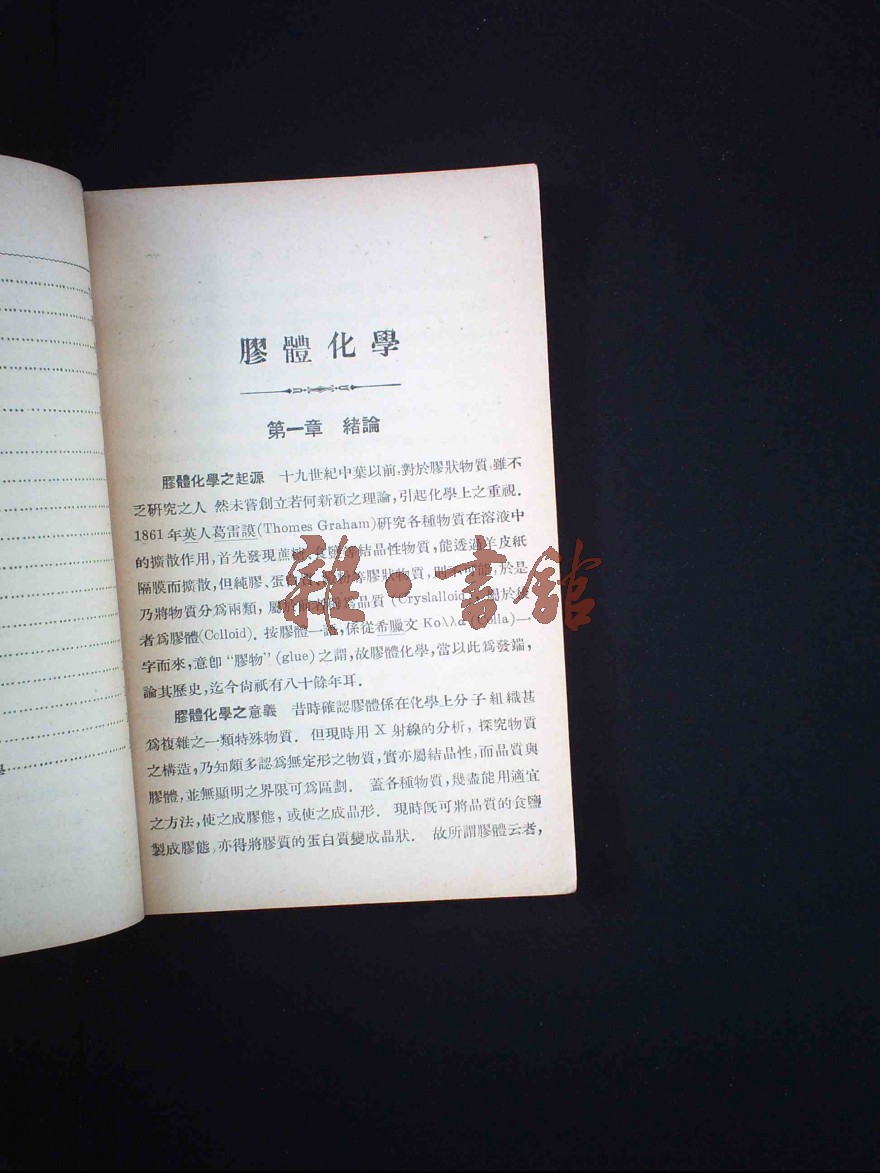 膠體化學
第一章 緒論
膠體化學之起源 十九世紀中葉以前,對於膠狀物質,雖不
乏研究之人 然未嘗創立若何新穎之理論,引起化學上之重視.
1861年英人葛雷謨(Thomes Graham)研究各種物質在溶液中
的擴散作用,首先發現蔗糖、食鹽等結晶性物質,能透過羊皮紙
隔膜而擴散,但純膠、蛋白質、等膠狀物質,則不能,於是
乃將物質分爲兩類,屬於前者爲晶質(Cryslalloid),屬於後
者爲膠體(Colloid). 按膠體一語,係從希臘文 Koλλα (Colla)一
字而來,意卽“膠物”(glue)之謂,故膠體化學,當以此爲發端,
論其歷史,迄今尙祇有八十餘年耳.
膠體化學之意義 昔時確認膠體係在化學上分子組織甚
爲複雜之一類特殊物質. 但現時用 X 射線的分析,探究物質
之構造,乃知頗多認爲無定形之物質,實亦屬結晶性,而晶質與
膠體,並無顯明之界限可爲區劃. 蓋各種物質,幾盡能用適宜
之方法,使之成膠態,或使之成晶形. 現時旣可將晶質的食鹽
製成膠態,亦得將膠質的蛋白質變成晶狀. 故所謂膠體云者,
雜·書館